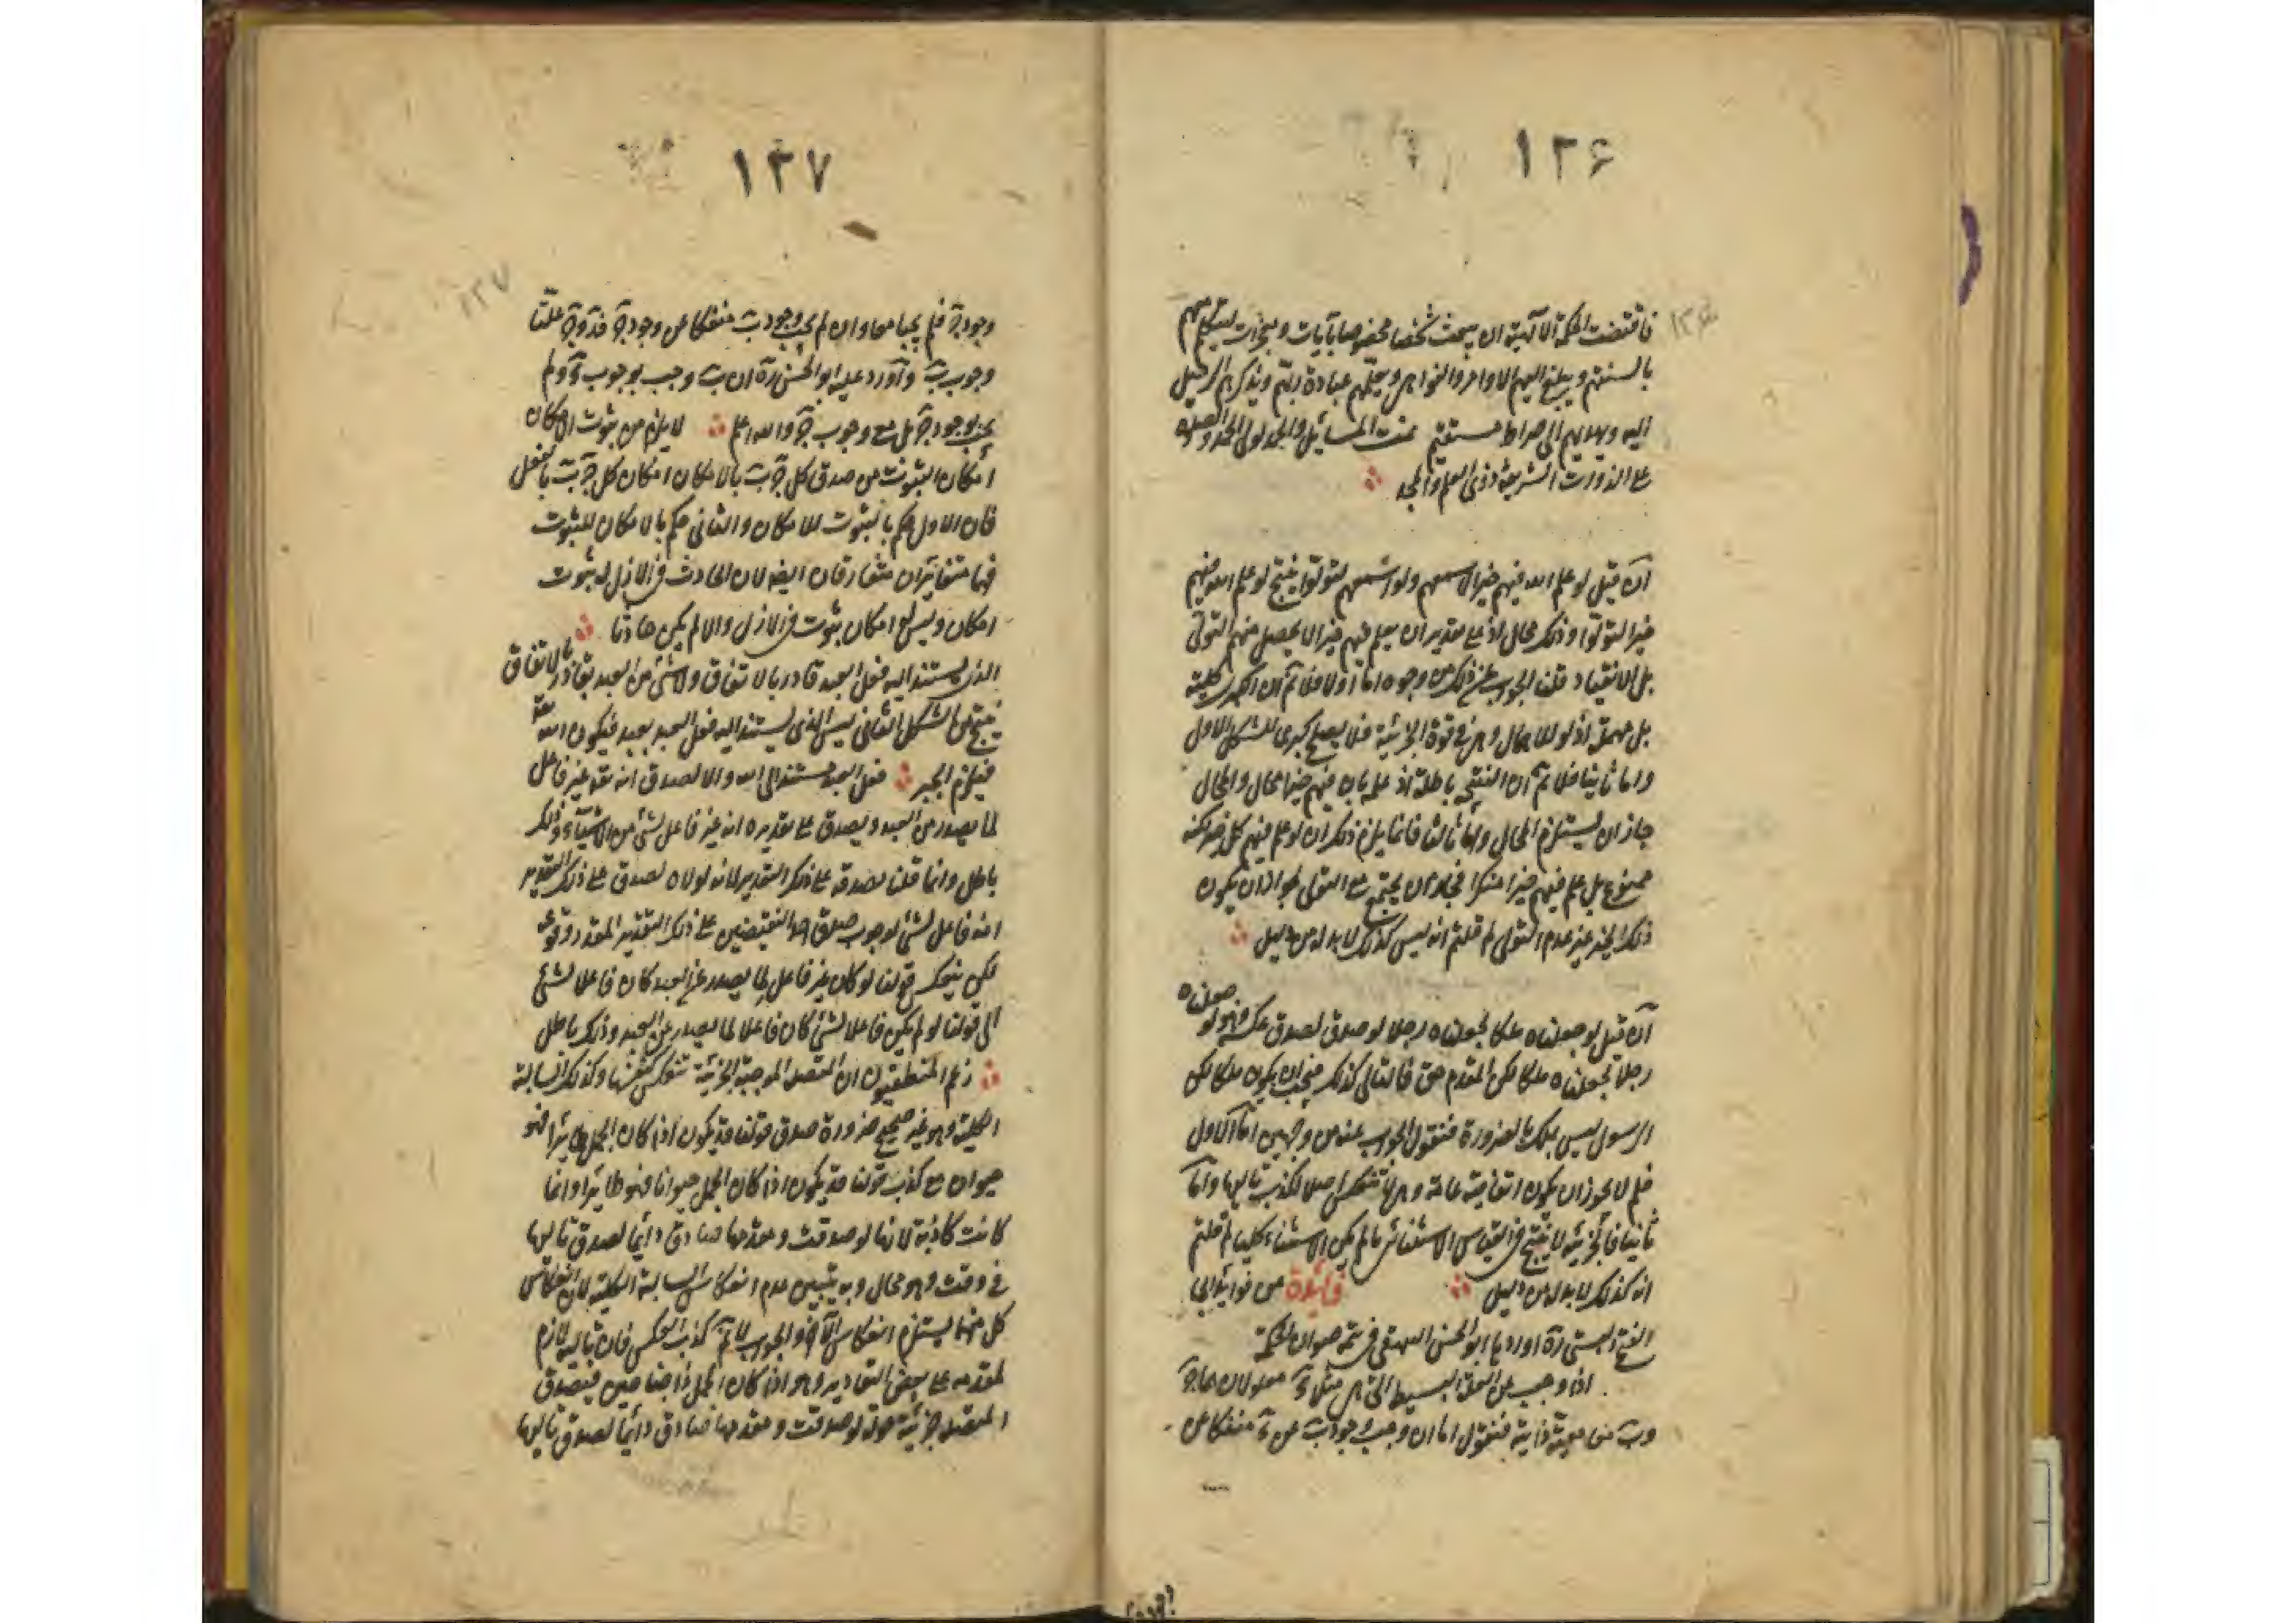 ١٢۶
١٢۶
فاقتضت الحكمة الآلهية ان يبعث شخصا مخصوصا بآيات ومعجزات ليكلمهم
بالسنتهم ويبلغ اليهم الاوامر والنواهى و عبادة ربهم ويذكرهم الرحيل
اليه ويهديهم الى صراط مستقيم تمت المسائل والحمد لولى الحمد والصلوة
على الذوات الشريفة ذوى العلم والمجد
آن قيل لو علم الله فيهم خيرا لاسمعهم ولو اسمعهم لتولوا ينتج لو علم الله فيهم
خيرا لتولوا وذلك محال اذ على تقدير ان يعلم فيهم خيرا لا يحصل منهم التولى
بل الانقياد قلنا الجواب عن ذلك من وجوه اما اولا فلا نم ان الكبرى كلية
بل مهملة اذ لو للاهمال وهى فى قوة الجزئية فلا يصلح كبرى للشكل الاول
واما ثانيا فلا نم ان النتيجة باطلة اذ علمه بان فيهم خيرا محال والمحال
جاز ان يستلزم المحال واما ثالثا فانما يلزم ذلك ان لو علم فيهم كل خير لكنه
ممنوع بل علم فيهم خيرا منكرا فجاز ان يجتمع مع التولى لجواز ان يكون
ذلك الخير غير عدم التولى لم قلتم انه ليس كذلك لا بد له من دليل
آن قيل لو جعلناه ملكا لجعلناه رجلا لو صدق لصدق عكسه وهو لو جعلناه
رجلا لجعلناه ملكا لكن المقدم حق فالتالى كذلك فيجب ان يكون ملكا لكن
الرسول ليس بملك بالضرورة فنقول الجواب عنه من وجهين اما الاول
فلم لا يجوز ان يكون اتفاقية عامة وهى لا تنعكس اصلا لكذب تاليها واما
ثانيا فالجزئية لا ينتج فى القياس الاستثنائى ما لم يكن الاستثناء كليا لم قلتم
انه كذلك لا بد له من دليل فائدة من فوائد ابى
الفتح البستى رة اوردها ابو الحسن البيهقى فى تتمة صوان الحكمة
اذا وجب عن العلة البسيطة التى هى مثلا آ معلولان هما جـ
وب معا معية ذاتية فنقول اما ان وجب وجود ب عن آ منفكا عن
١٢٧
١٢٧
وجود جـ فلم يجبا معا وان لم يجب وجود ب منفكا عن وجود جـ علتا
وجوب ب وآورد عليه ابو الحسن رة ان ب وجب بوجوب آ ولم
يجب بوجود جـ بل مع وجوب جـ والله اعلم لا يلزم من ثبوت الامكان
امكان الثبوت من صدق كل جـ ب بالامكان امكان كل جـ ب بالفعل
فان الاول حكم بالثبوت للامكان والثانى حكم بالامكان للثبوت
فهما متغايران متفارقان ايضا لان الحادث فى الازل له ثبوت
امكان وليس له امكان ثبوت فى الازل والا لم يكن حادثا
الذى يستند اليه فعل العبد قادر بالاتفاق ولا شئ من العبد بقادر بالاتفاق
ينتج من الشكل الثانى ليس الذى يستند اليه فعل العبد بعبد فيكون الله تعالى
فيلزم الجبر فعل العبد مستند الى الله والا لصدق انه تعه غير فاعل
لما يصدر من العبد ويصدق على تقديره انه غير فاعل لشئ من الاشياء وذلك
باطل وانما قلنا بصدقه على ذلك التقدير لانه لولاه لصدق على ذلك التقدير
انه فاعل لشئ لوجوب صدق احد النقيضين على ذلك التقدير المقدر وقوعه
لكن ينعكس قولنا لو كان غير فاعل لما يصدر عن العبد كان فاعلا لشئ
الى قولنا لو لم يكن فاعلا لشئ كان فاعلا لما يصدر عن العبد وذلك باطل
زعم المنطقيون ان المتصلة الموجبة الجزئية تنعكس كنفسها وكذلك السالبة
الكلية وهو غير صحيح ضرورة صدق قولنا قد يكون اذا كان الجمل طائرا فهو
حيوان مع كذب قولنا قد يكون اذا كان الجمل حيوانا فهو طائرا وانما
كانت كاذبة لانها لو صدقت ومقدمها صادق دائما لصدق تاليها
فى وقت وهو محال وبه يتبين عدم انعكاس السالبة الكلية لان انعكاس
كل منهما يستلزم انعكاس الآخر والجواب لا نم كذب العكس فان تاليه لازم
لمقدمه على بعض التقادير وهو اذا كان الجمل ذا جناحين فيصدق
المتصلة جزئية قوله لو صدقت ومقدمها صادق دائما لصدق تاليها